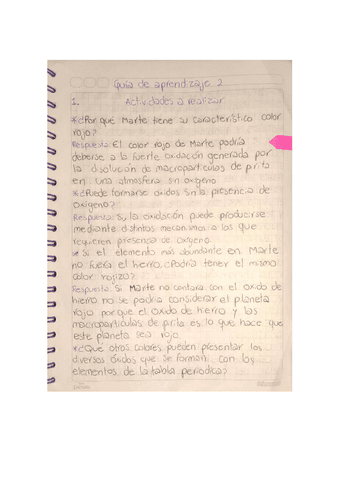 Guía de aprendizaje 2
1. Actividades a realizar
*¿Por qué Marte tiene su característico color
rojo?
Respuesta: El color rojo de Marte podría
deberse a la fuerte oxidación generada por
la disolución de macropartículas de pirita
en una atmosfera sin oxigeno
*¿Puede formarse oxidos sin la presencia de
Oxígeno?
Respuesta: Si, la oxidación puede producirse
mediante distintos mecanismos a los que
requieren presencia de oxigeno.
*Si el elemento más abundante en Marte
no fuera el hierro ¿Podría tener el mismo
color rojizo?
Respuesta: Si Marte no contara con el oxido de
hierro no se podria considerar el planeta
rojo porque el oxido de hierro y las
macropartículas de pirita es lo que hace que
este planeta sea rojo.
*¿Qué otros colores pueden presentar los
diversos óxidos que se forman con los
elementos de la tabla periodica?